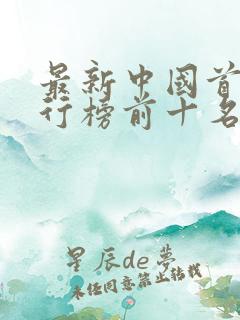 最新中國首
行榜前十名
星辰de夢
未经同意禁止转载